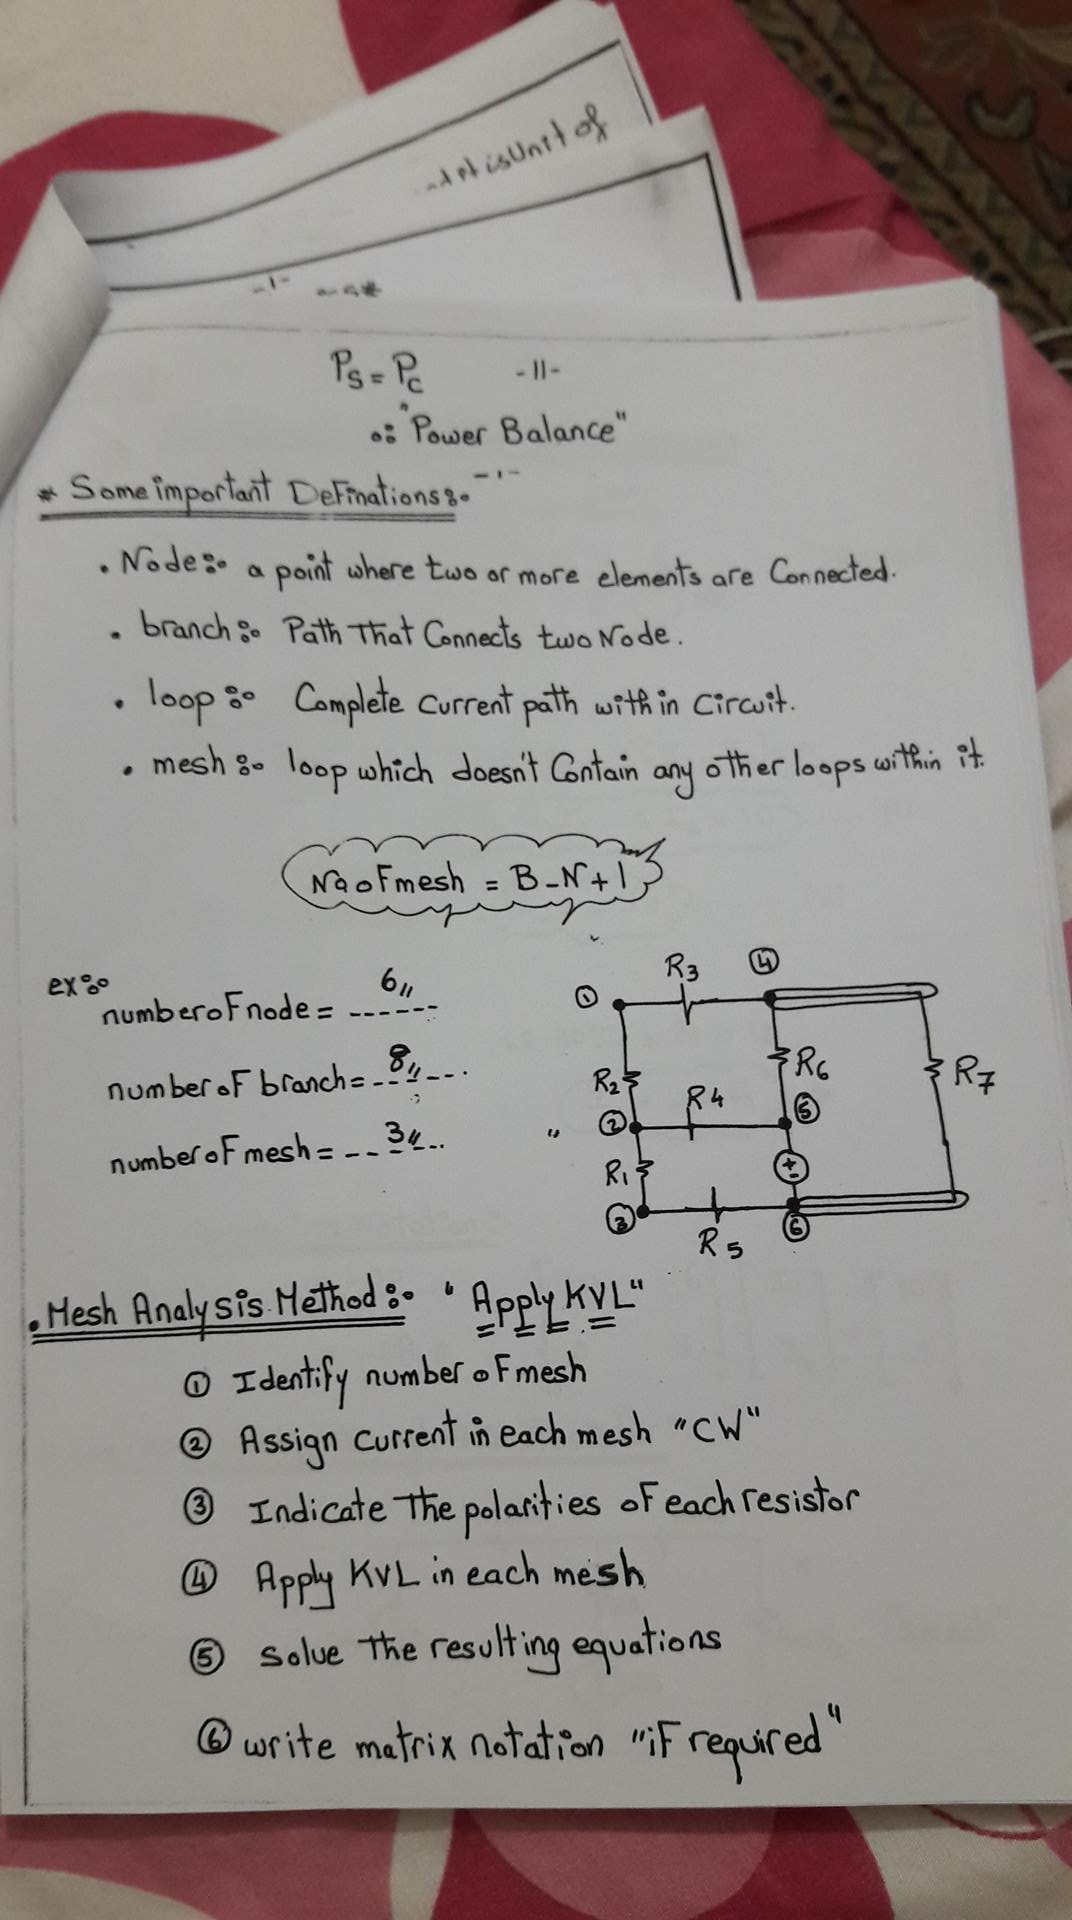 is Unit of
Ps = Pc -11-
∴ "Power Balance"
* Some important Definations:-
• Node:- a point where two or more elements are Connected.
• branch:- Path That Connects two Node.
• loop:- Complete current path with in circuit.
• mesh:- loop which doesn't Contain any other loops within it.
No of mesh = B-N+1
ex:-
number of node = 6
number of branch = 8
number of mesh = 3
① R3 ④
R2 R6 R7
② R4 ⑤
R1 ±
③ R5 ⑥
• Mesh Analysis Method:- "Apply KVL"
① Identify number of mesh
② Assign current in each mesh "CW"
③ Indicate The polarities of each resistor
④ Apply KVL in each mesh
⑤ solve The resulting equations
⑥ write matrix notation "if required"